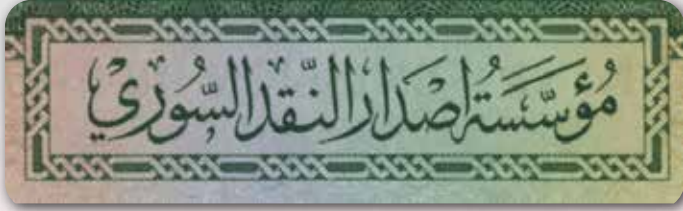 مُؤَسَّسَةُ إصْدَارُ النَّقْدِ السُّورِيّ